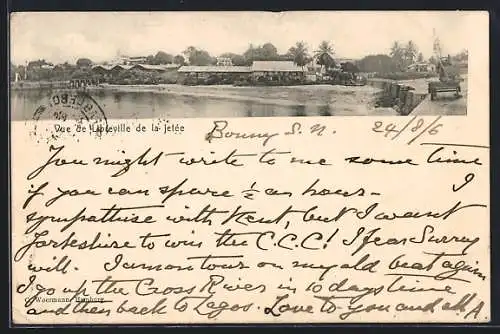 Vue de Libreville de la jetée
Bonny S.N. 24/8/6
You might write to me some time
if you can spare ½ an hour – I
sympathise with Kent, but I want
Yorkshire to win the C.C.C! I fear Surrey
will. I am on tour on my old beat again
I go up the Cross River in 10 days time
C. Woermann, Hamburg.
and then back to Lagos. Love to you and all A.